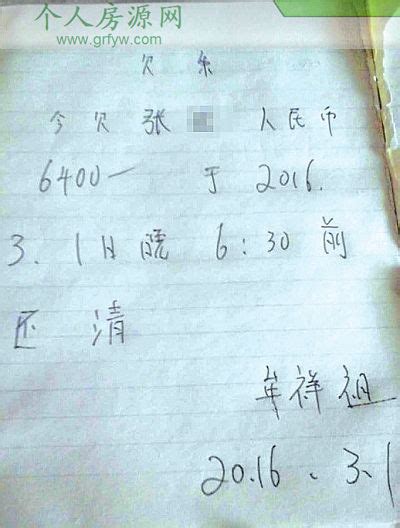 个人房源网
www.grfyw.com
欠条
今欠张 人民币
6400一 于2016.
3.1日晓 6:30前
还清
牟祥祖
2016、3、1